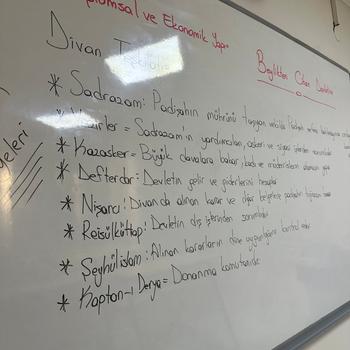 Toplumsal ve Ekonomik Yapı
Divan
Beylikten Cihan Devletine
* Sadrazam: Padişahın mührünü taşıyan
* Vezirler = Sadrazam'ın yardımcıları, askeri ve siyasi
* Kazasker = Büyük davalara bakar, kadı ve müderrislerin
* Defterdar: Devletin gelir ve giderlerini hesaplar
* Nişancı: Divanda alınan karar ve diğer belgelere padişahın tuğrasını
* Reisülküttap: Devletin dış işlerinden sorumludur
* Şeyhülislam: Alınan kararların dine uygunluğunu kontrol eder
* Kaptan-ı Derya = Donanma komutanıdır